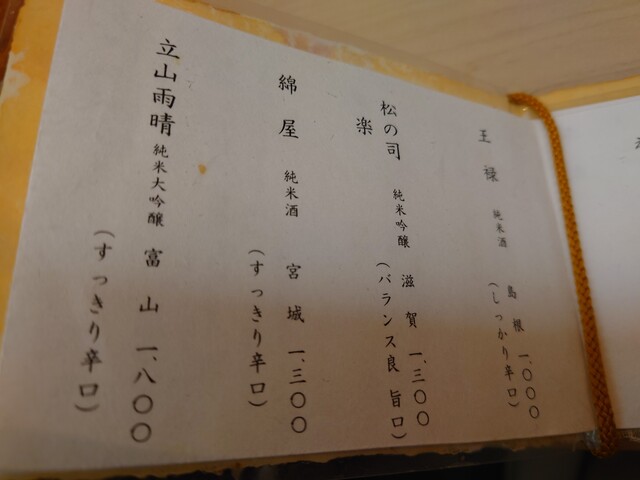 王祿 純米酒 島根 一、〇〇〇
(しっかり辛口)
松の司 純米吟醸 滋賀 一、三〇〇
楽
(バランス良 旨口)
綿屋 純米酒 宮城 一、三〇〇
(すっきり辛口)
立山雨晴 純米大吟醸 富山 一、八〇〇
(すっきり辛口)